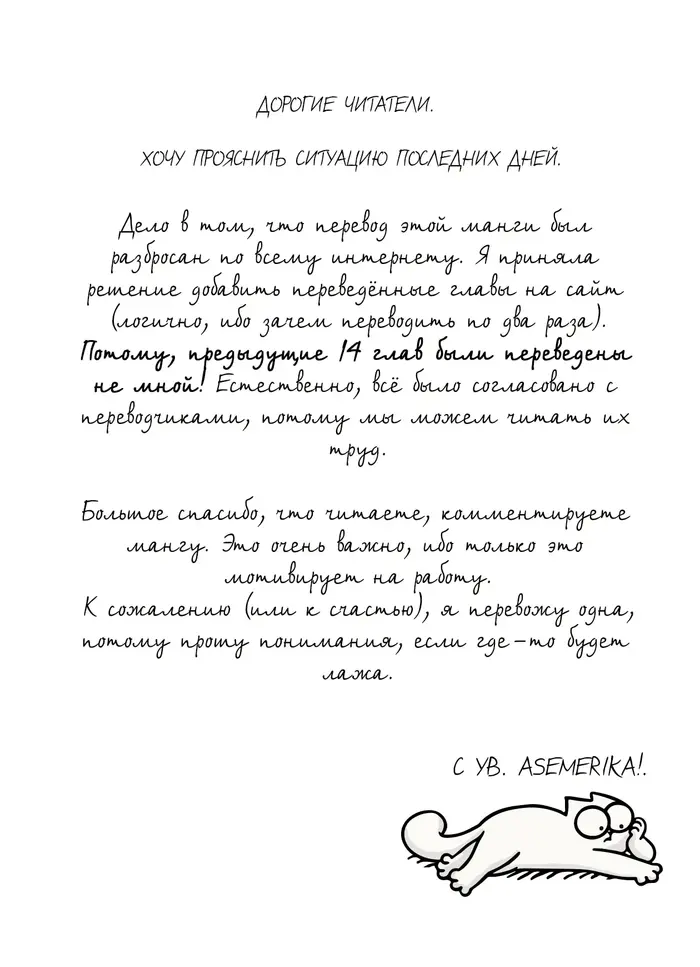 ДОРОГИЕ ЧИТАТЕЛИ.
ХОЧУ ПРОЯСНИТЬ СИТУАЦИЮ ПОСЛЕДНИХ ДНЕЙ.
Дело в том, что перевод этой манги был
разбросан по всему интернету. Я приняла
решение добавить переведённые главы на сайт
(логично, ибо зачем переводить по два раза).
Потому, предыдущие 14 глав были переведены
не мной! Естественно, всё было согласовано с
переводчиками, потому мы можем читать их
труд.
Большое спасибо, что читаете, комментируете
мангу. Это очень важно, ибо только это
мотивирует на работу.
К сожалению (или к счастью), я перевожу одна,
потому прошу понимания, если где-то будет
лажа.
С УВ. ASEMERIKA!.